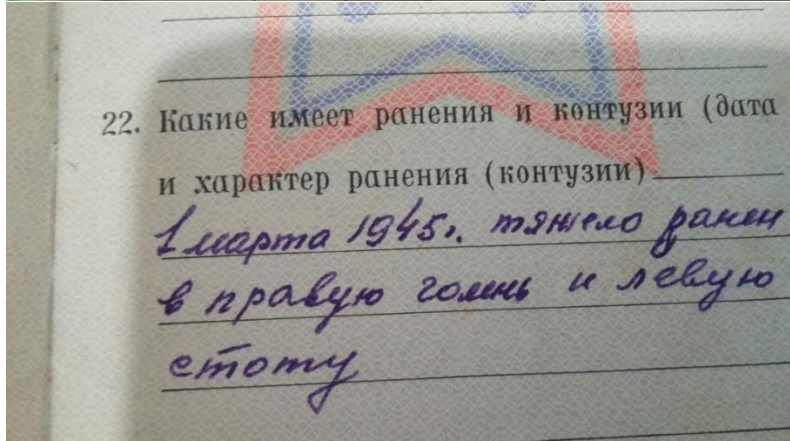 22. Какие имеет ранения и контузии (дата
и характер ранения (контузии)
1 марта 1945г. тяжело ранен
в правую голень и левую
стопу